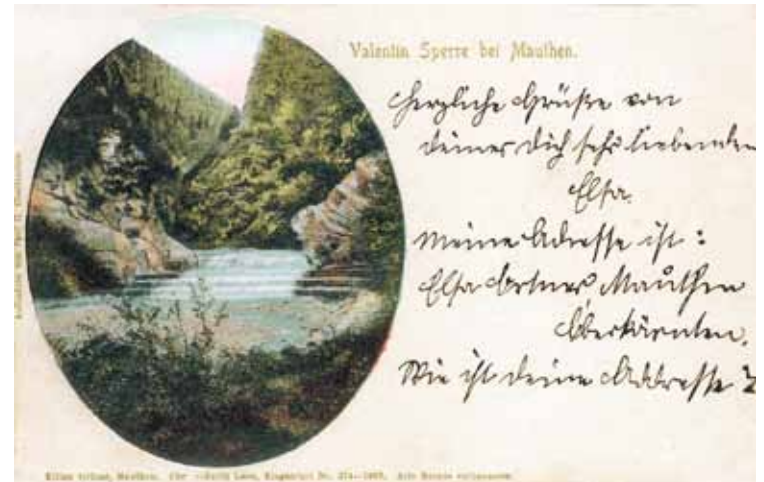 Valentin Sperre bei Mauthen.
Herzliche Grüße von
deiner dich sehr liebenden
Elsa.
Meine Adresse ist:
Elsa Ortner Mauthen
Oberkärnten.
Wie ist deine Addresse?
Mauthen. Nr. 274–1905.